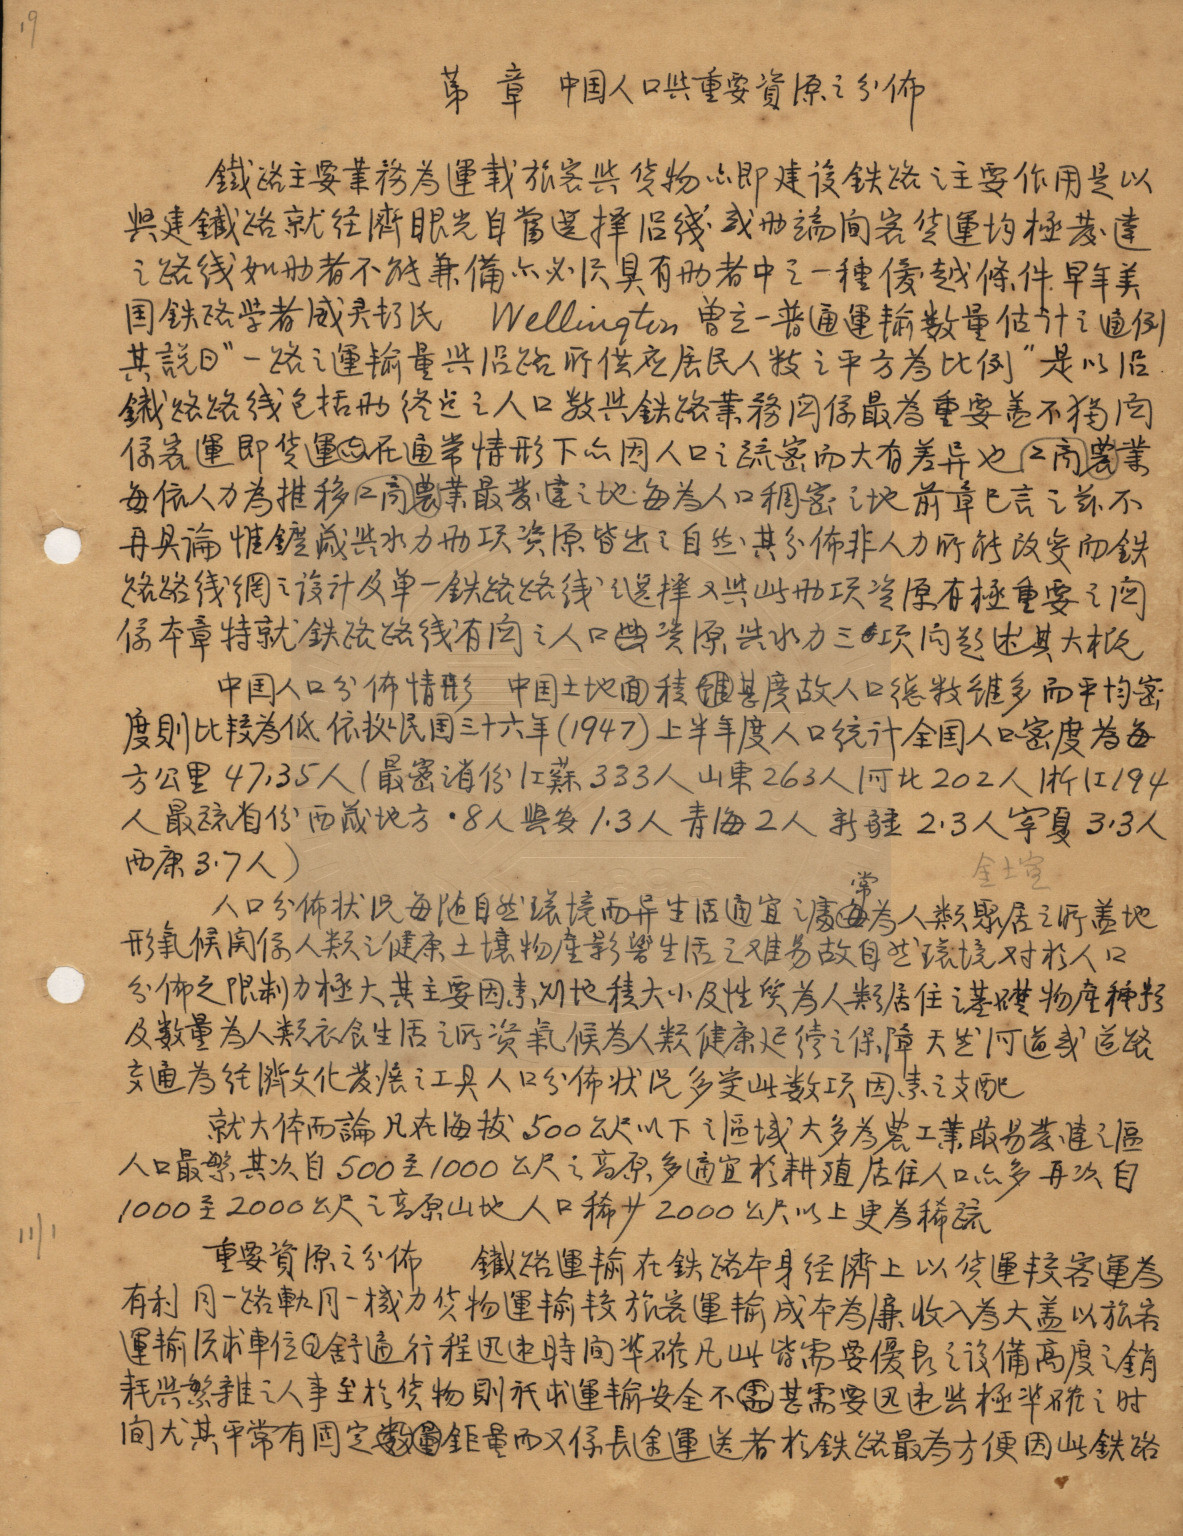 19
第 章 中国人口與重要資源之分佈
鐵路主要業務為運載旅客與貨物亦即建設鉄路之主要作用是以
興建鐵路就経濟眼光自當選擇沿綫或両端间客貨運均極發達
之路线如両者不能兼備亦必須具有両者中之一種優越條件早年美
国鉄路学者威灵顿氏 Wellington 曾立一普通運輸数量估计之通例
其說曰"一路之運輸量與沿路所供应居民人数之平方為比例"是以沿
鐵路路线包括両終点之人口数與鉄路業務関係最為重要盖不獨関
係客運即貨運在通常情形下亦因人口之疏密而大有差异也工商農業
每依人力為推移工商農業最發達之地每為人口稠密之地前章已言之茲不
再具論惟鑛藏與水力両项资源皆出之自然其分佈非人力所能改变而鉄
路路线網之设计及单一鉄路路线之選擇又與此両项资源有極重要之関
係本章特就鉄路路线有関之人口资源與水力三项问题述其大概
中国人口分佈情形 中国土地面積甚廣故人口總数雖多而平均密
度則比較為低依拠民国三十六年(1947)上半年度人口統计全国人口密度為每
方公里47.35人(最密省份江蘇333人山東263人河北202人浙江194
人最疏省份西藏地方.8人興安1.3人青海2人新疆2.3人寧夏3.3人
西康3.7人)
人口分佈状况每随自然環境而异生活適宜之處常為人類聚居之所盖地
形氣候関係人類之健康土壤物産影響生活之难易故自然環境对於人口
分佈之限制力極大其主要因素則地積大小及性質為人類居住之基礎物産種類
及数量為人類衣食生活之所资氣候為人類健康延续之保障天然河道或道路
交通為经濟文化發展之工具人口分佈状况多受此数项因素之支配
就大体而論凡在海拔500公尺以下之區域大多為農工業最易發達之區
人口最繁其次自500至1000公尺之高原多適宜於耕殖居住人口亦多再次自
1000至2000公尺之高原山地人口稀少2000公尺以上更為稀疏
重要資源之分佈 鐵路運輸在鉄路本身経濟上以貨運較客運為
有利同一路軌同一機力貨物運輸較旅客運輸成本為廉收入為大盖以旅客
運輸须求車位舒適行程迅速時间準確凡此皆需要優良之设備高度之銷
耗與繁雜之人事至於貨物則祇求運輸安全不甚需要迅速與極準確之时
间尤其平常有固定鉅量而又係長途運送者於鉄路最為方便因此鉄路
11/1